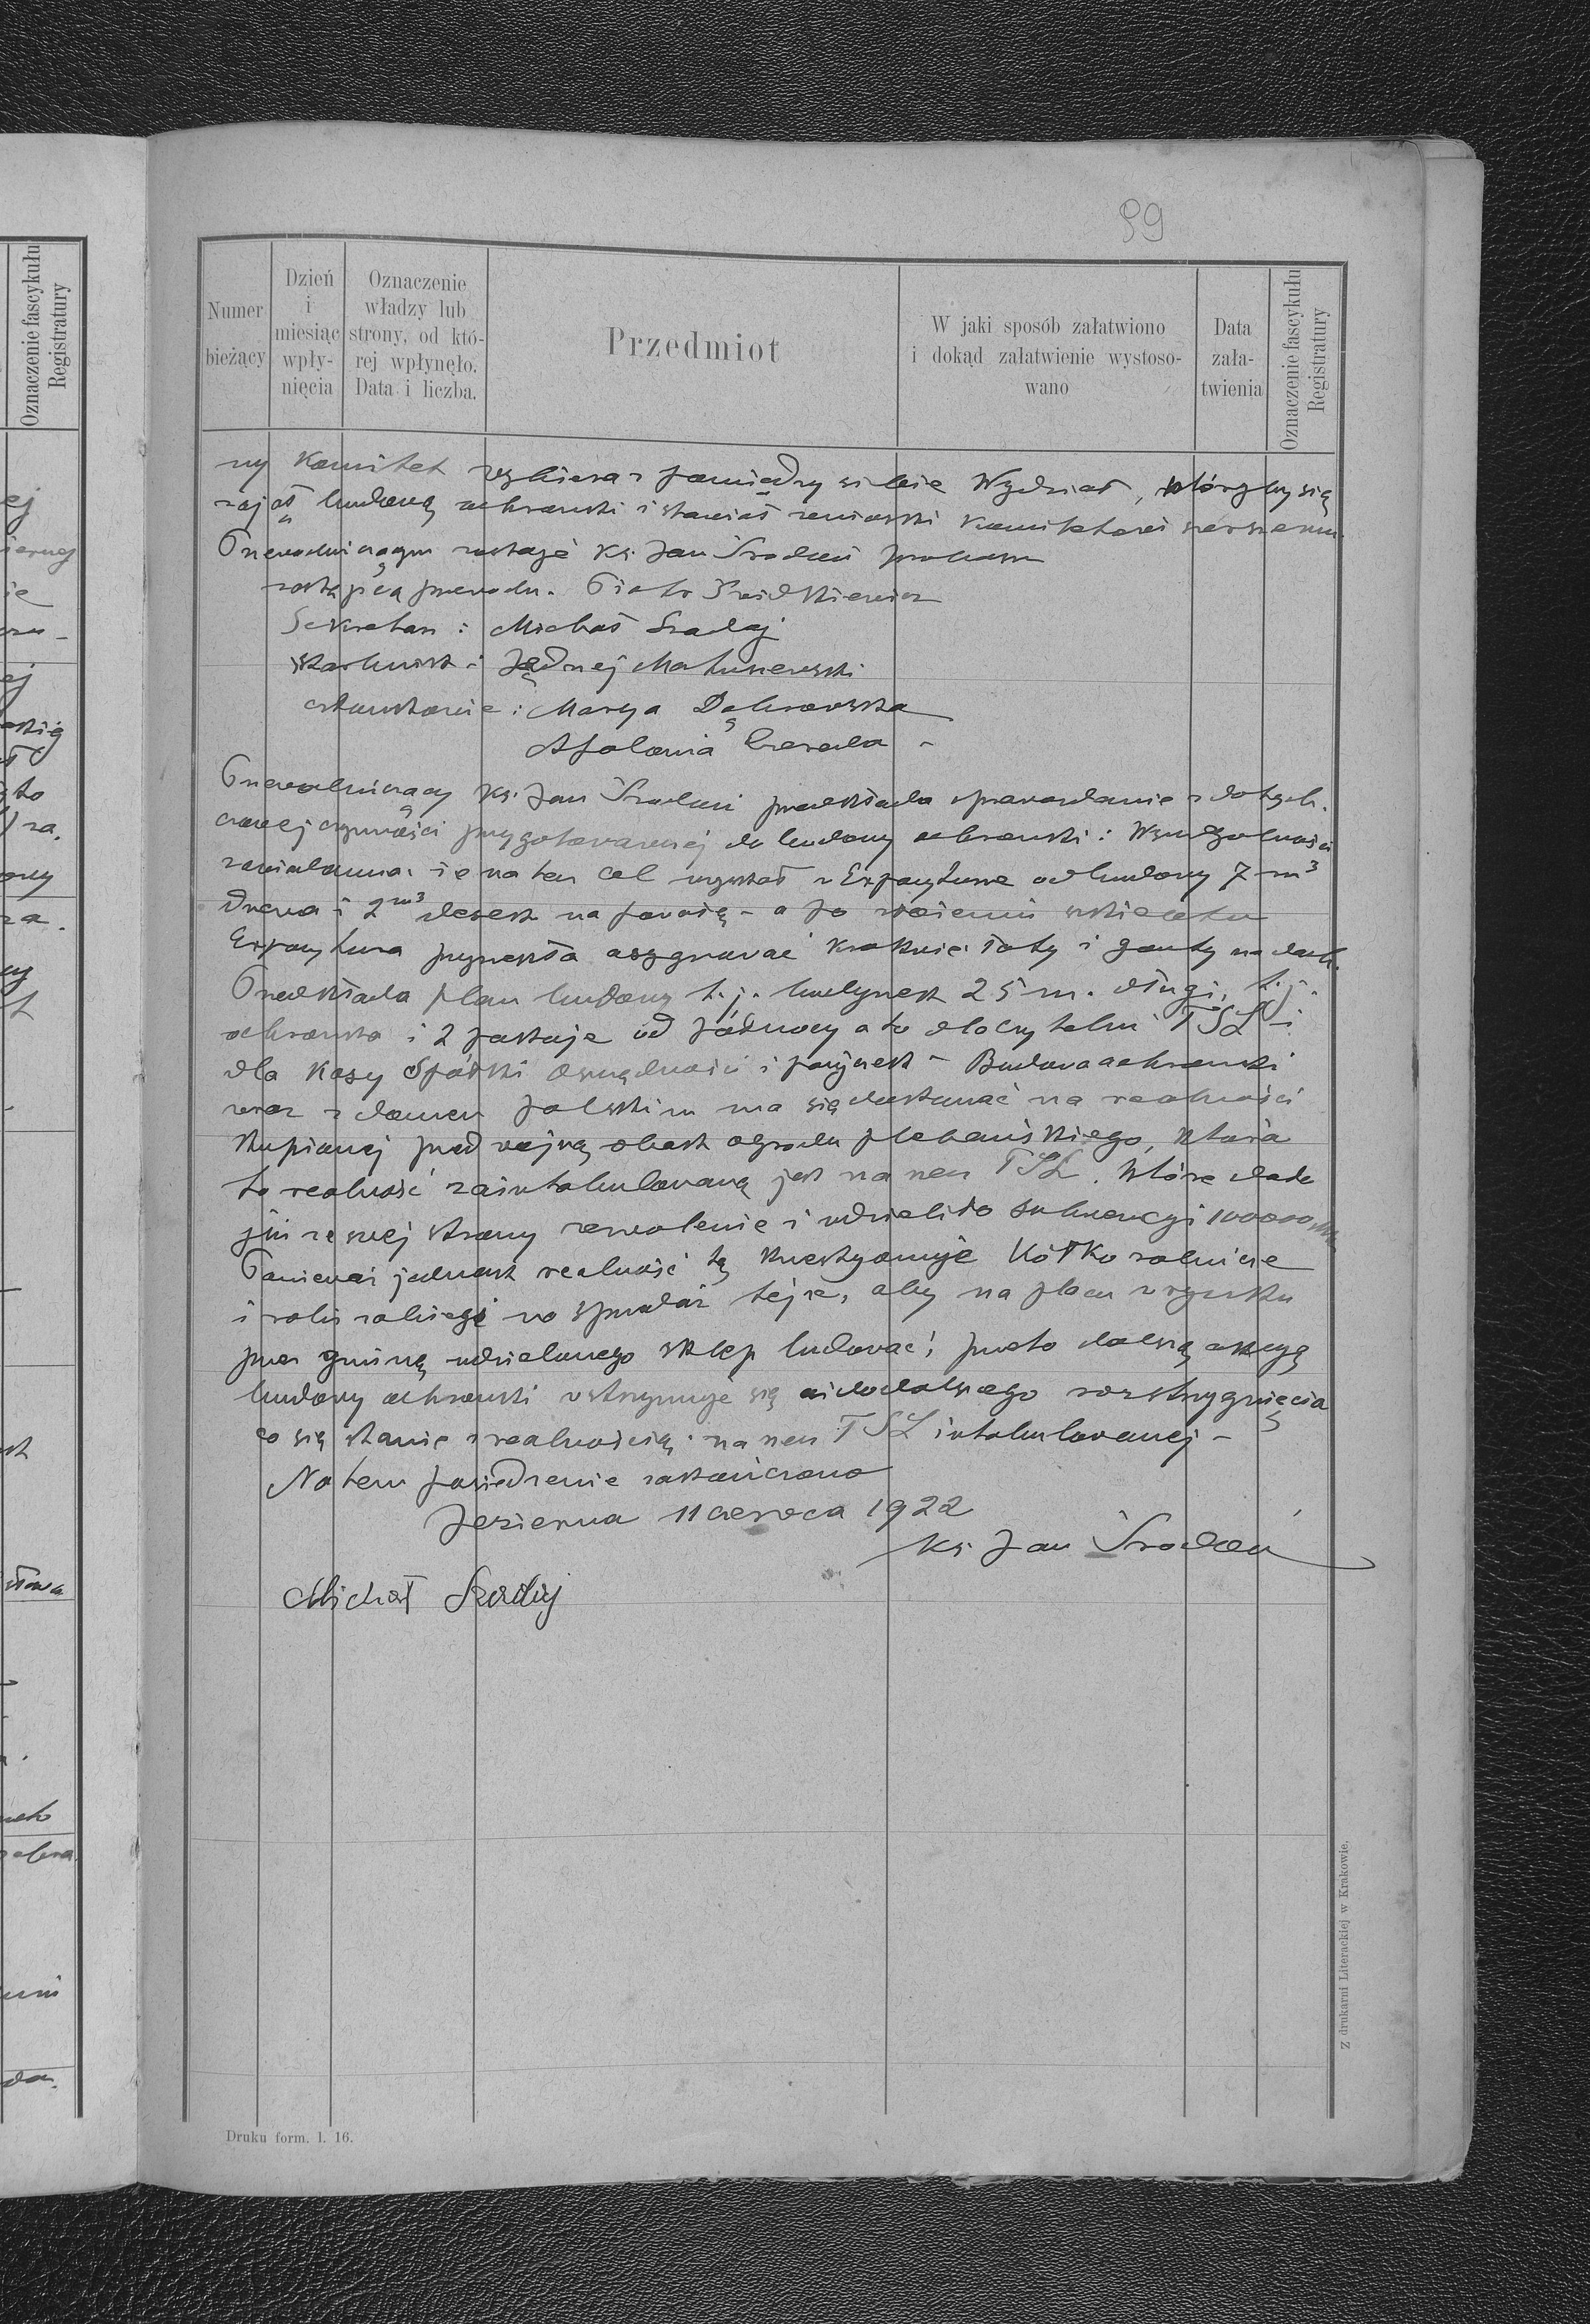 99
Numer
bieżący
Dzień
i
miesiąc
wpły-
nięcia
Oznaczenie
władzy lub
strony, od któ-
rej wpłynęło.
Data i liczba.
Przedmiot
W jaki sposób załatwiono
i dokąd załatwienie wystoso-
wano
Data
zała-
twienia
Oznaczenie fascykułu
Registratury
Oznaczenie fascykułu
Registratury
ny Komitet wybiera z pomiędzy siebie Wydział, któryby się
zajął budową ochronki i stawiał wnioski komitetowi
Przewodniczącym zostaje ks. Jan Środoń proboszcz
zastępcą przewodn. Piotr
Sekretarz: Michał Szadaj
skarbnik: Jędrzej Matuszewski
członkowie: Marya Dąbrowska
Apolonia
Przewodniczący ks. Jan Środoń przedkłada sprawozdanie z dotych-
czasowej czynności przygotowawczej do budowy ochronki: W szczególności
zawiadamia, że na ten cel uzyskał z Expozytury odbudowy 7 m3
drzewa i 2 m3 desek na powałę - a po wzniesieniu szkieletu
Expozytura przyrzekła asygnować krokwie łaty i gonty na dach.
Przedkłada plan budowy t. j. budynek 25 m. długi, t. j.
ochronka i 2 pokoje od północy a to dla czytelni TSL i
dla Kasy Spółki oszczędności i pożyczek - Budowa ochronki
wraz z domem polskim ma się dokonać na realności
kupionej przed wojną obok ogrodu plebańskiego, która
to realność zaintabulowaną jest na rzecz TSL. które dało
już ze swej strony zezwolenie i udzieliło subwencyi 100000 m
Ponieważ jednak realność tę kwestyonuje Kółko rolnicze
i robi zabiegi o sprzedaż tejże, aby na placu w rynku
przez gminę udzielonego sklep budować, przeto dalszą akcyę
budowy ochronki wstrzymuje się aż do dalszego rozstrzygnięcia
co się stanie z realnością na rzecz TSL intabulowanej -
Na tem posiedzenie zakończono
Jezierna 11 czerwca 1922
ks. Jan Środoń
Michał Szadaj
Druku form. l. 16.
Z drukarni Literackiej w Krakowie.